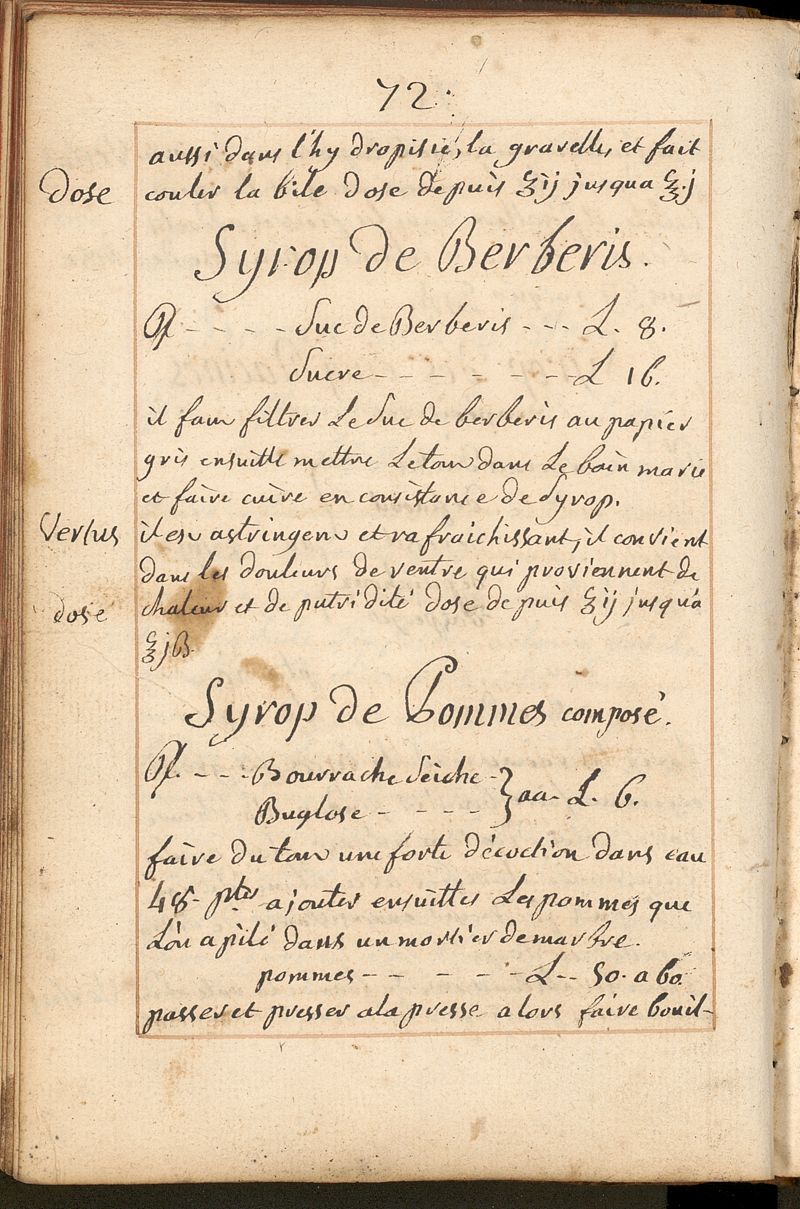 72.
aussi dans l'hydropisie, la gravelle, et fait
Dose couler la bile Dose depuis ℥ij jusqua ℥j
Syrop de Berberis.
℞ - - - - Suc de Berberis - - - L. 8.
Sucre - - - - - - - L 16.
il faut filtrer Le Suc de berberis au papier
gris ensuitte mettre Le tout dans Le bain marie
et faire cuire en consistance de Syrop.
Vertus il est astringent et rafraichissant, il convient
dans les douleurs de ventre qui proviennent de
dose chaleur et de putridité dose depuis ℥ij jusqu'a
℥jß.
Syrop de Pommes composé.
℞. - - - Bourrache Seiche -
Buglose - - - - } aa. L. 6.
faire du tout une forte décoction dans eau
48 ptes ajouter ensuittes Les pommes que
L'on a pilé dans un mortier de marbre.
pommes - - - - - - L - - 50. a 60.
passer et presser a la presse alors faire bouil-